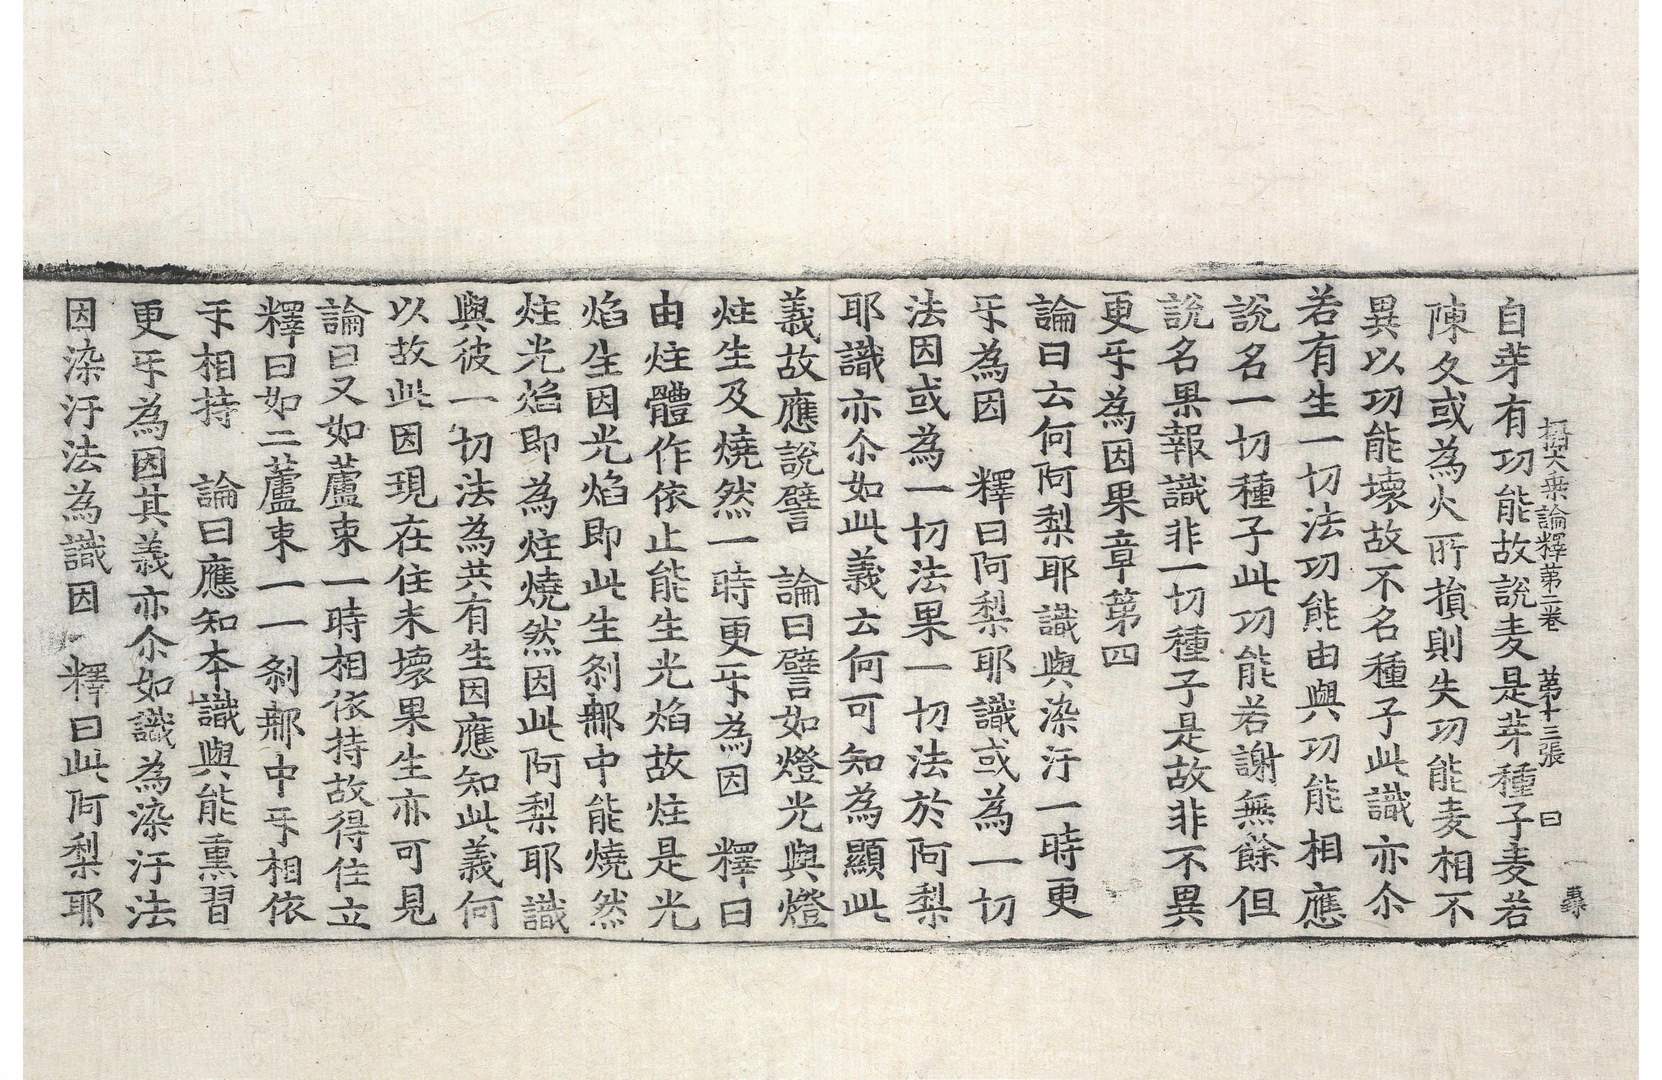 攝大乘論釋第二卷　第十三張　曰
自芽有功能故說麦是芽種子麦若
陳久或為火所損則失功能麦相不
異以功能壞故不名種子此識亦尒
若有生一切法功能由與功能相應
說名一切種子此功能若謝無餘但
說名果報識非一切種子是故非不異
更㸦為因果章第四
論曰云何阿梨耶識與染汙一時更
㸦為因　釋曰阿梨耶識或為一切
法因或為一切法果一切法於阿梨
耶識亦尒如此義云何可知為顯此
義故應說譬　論曰譬如燈光與燈
炷生及燒然一時更㸦為因　釋曰
由炷體作依止能生光焰故炷是光
焰生因光焰即此生剎那中能燒然
炷光焰即為炷燒然因此阿梨耶識
與彼一切法為共有生因應知此義何
以故此因現在住未壞果生亦可見
論曰又如蘆束一時相依持故得住立
釋曰如二蘆束一一剎那中㸦相依
㸦相持　論曰應知本識與能熏習
更㸦為因其義亦尒如識為染汙法
因染汙法為識因　釋曰此阿梨耶